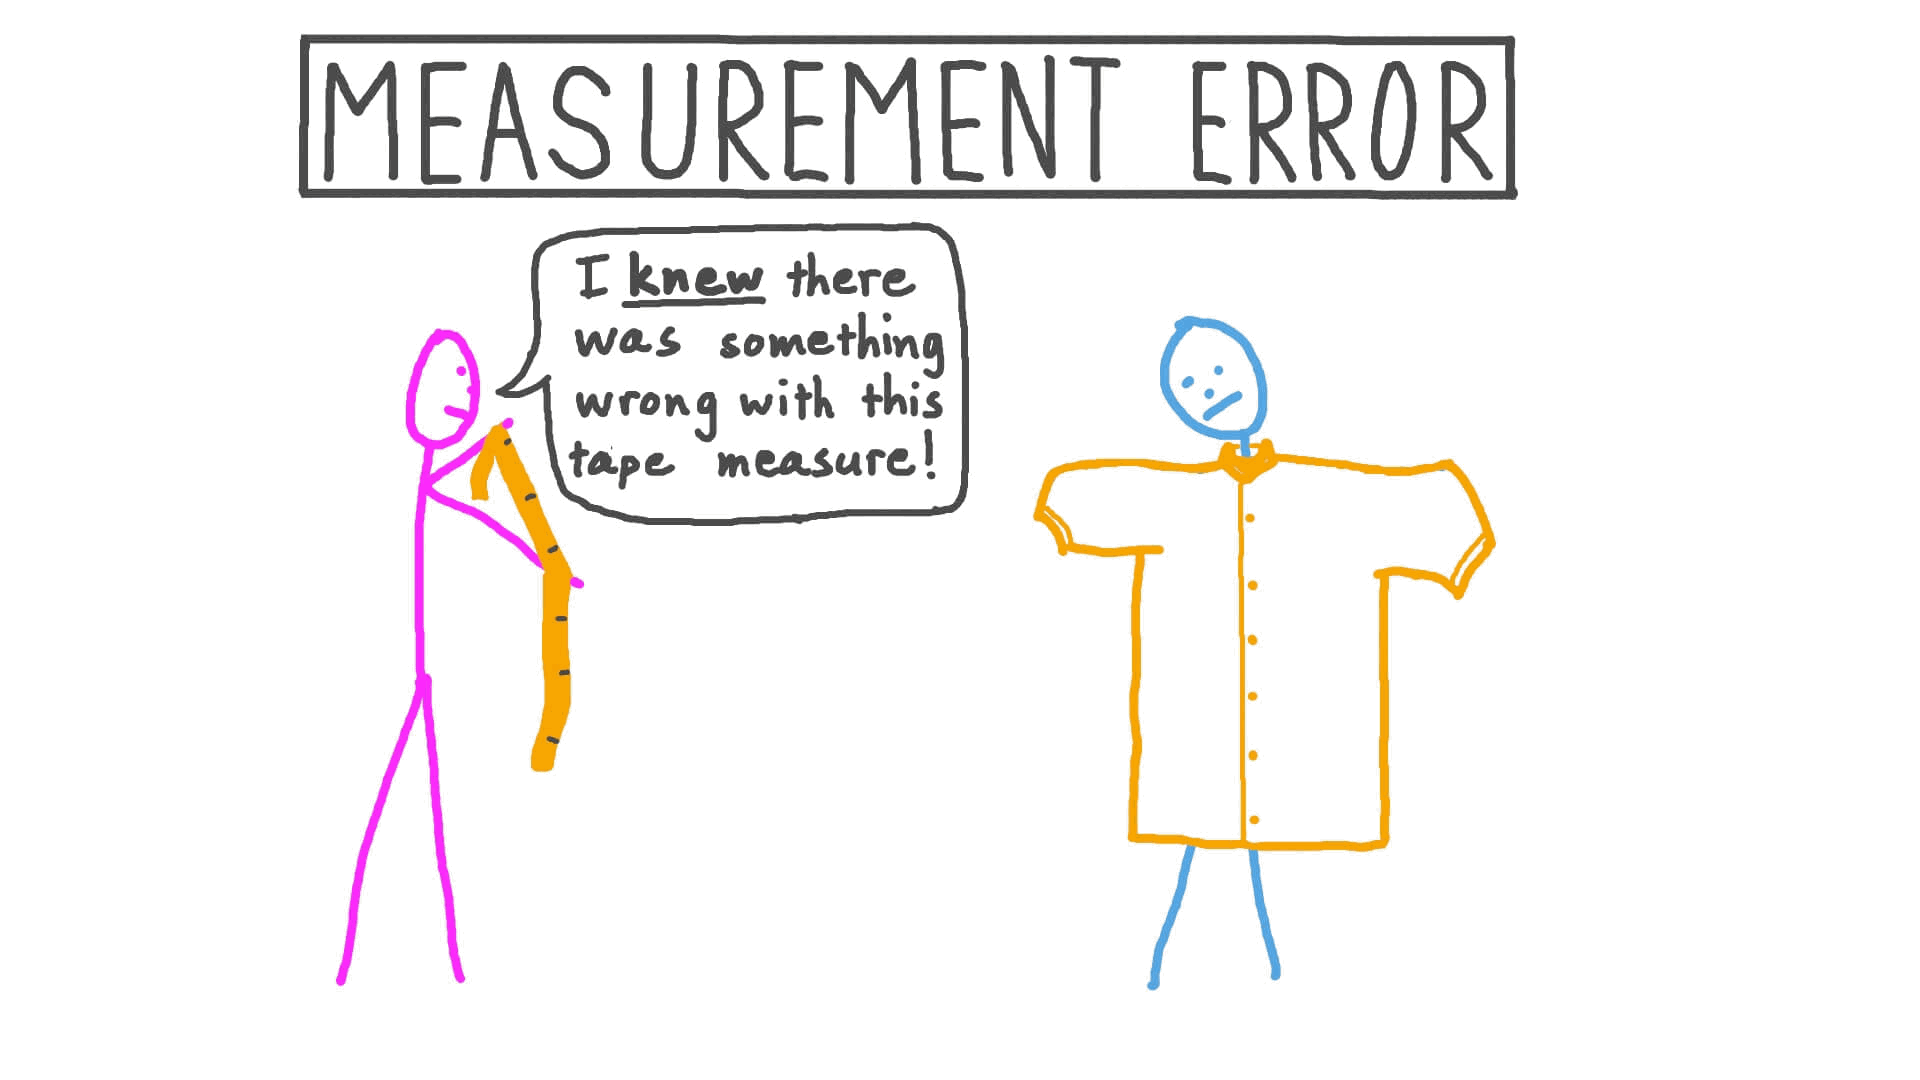 MEASUREMENT ERROR
I knew there
was something
wrong with this
tape measure!